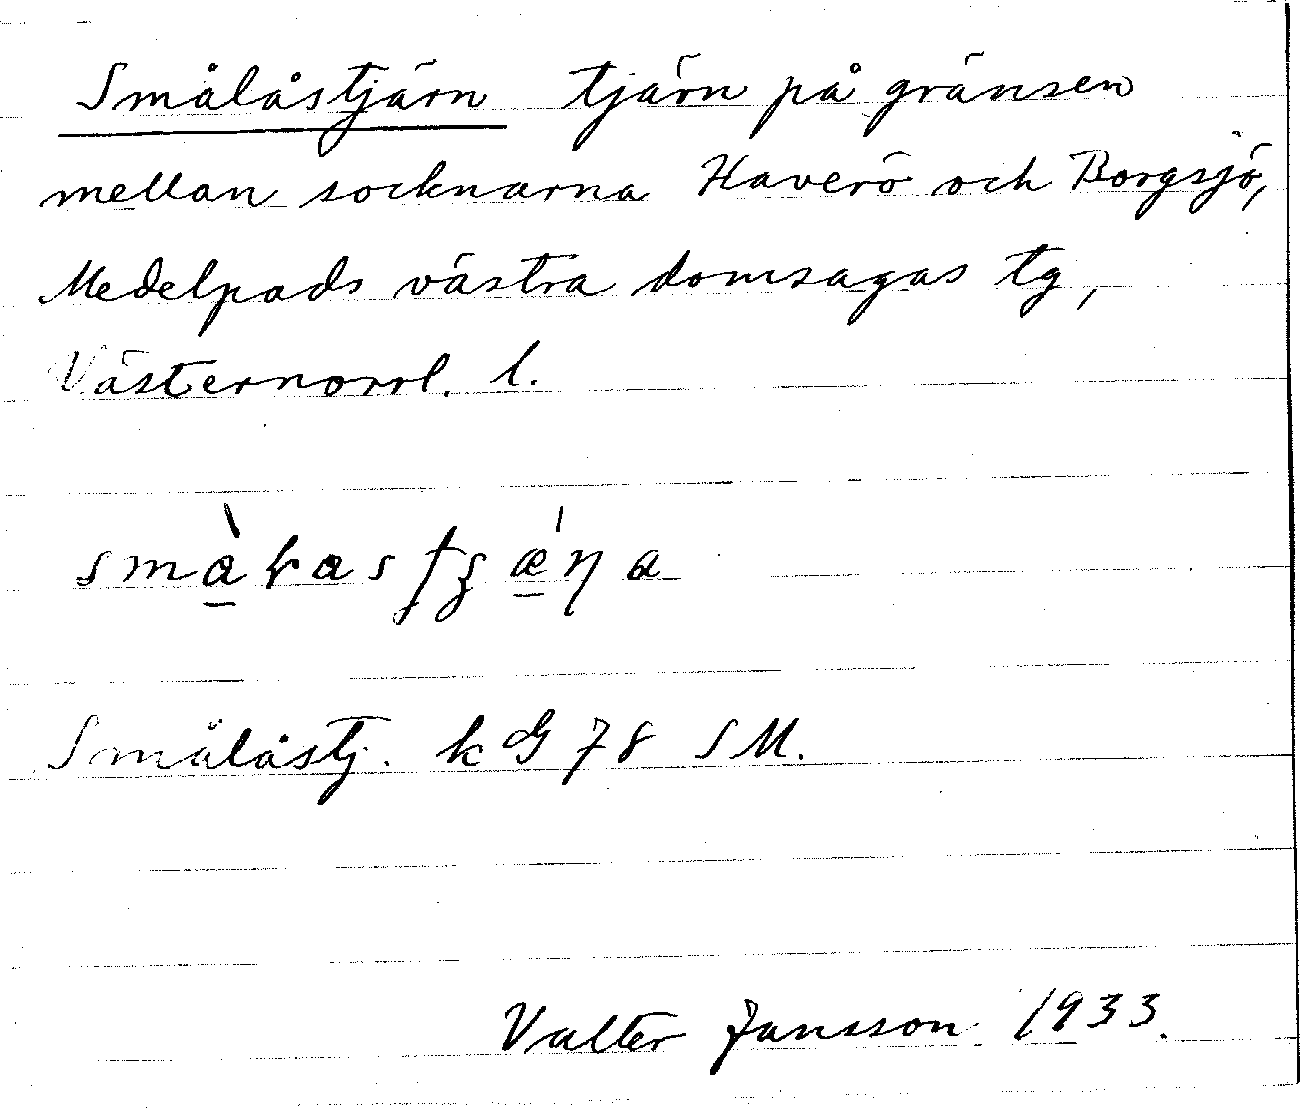 Smålåstjärn tjärn på gränsen
mellan socknarna Haverö och Borgsjö,
Medelpads västra domsagas tg,
Västernorrl. l.
Smålåstj. kG 78 SM.
Valter Jansson 1933.